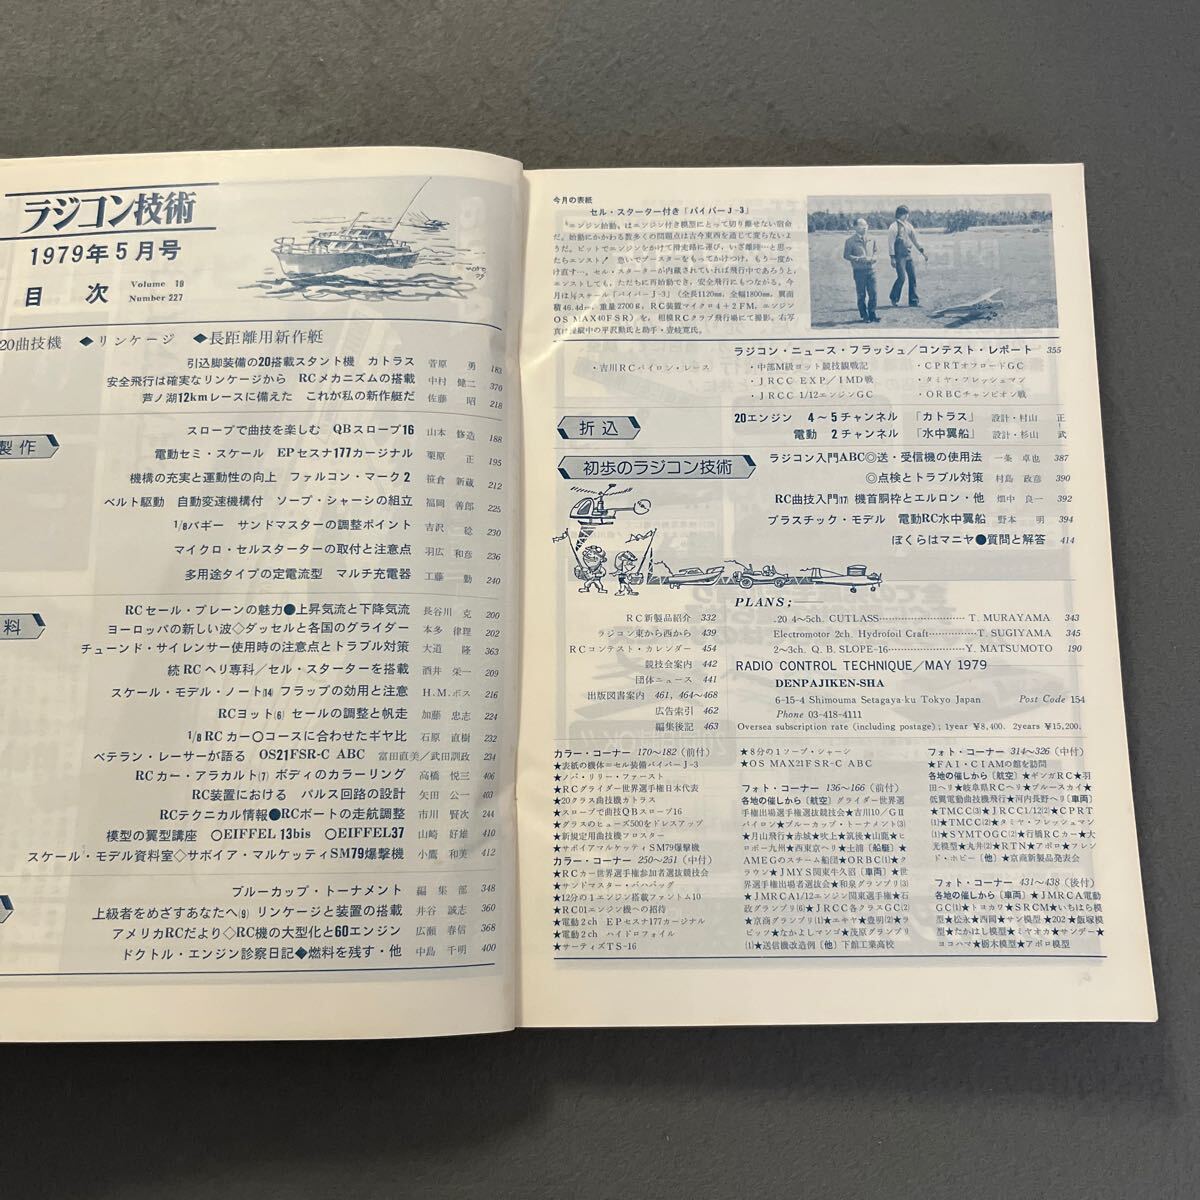 ラジコン技術
1979年5月号
目次
Volume 19
Number 227
20曲技機 ◆リンケージ ◆長距離用新作艇
引込脚装備の20搭載スタント機 カトラス 菅原 勇 183
安全飛行は確実なリンケージから RCメカニズムの搭載 中村 健二 370
芦ノ湖12kmレースに備えた これが私の新作艇だ 佐藤 昭 218
製作
スロープで曲技を楽しむ QBスロープ16 山本 修造 188
電動セミ・スケール EPセスナ177カージナル 栗原 正 195
機構の充実と運動性の向上 ファルコン・マーク2 笹倉 新蔵 212
ベルト駆動 自動変速機構付 ソープ・シャーシの組立 福岡 善郎 225
1/8バギー サンドマスターの調整ポイント 吉沢 稔 230
マイクロ・セルスターターの取付と注意点 羽広 和彦 236
多用途タイプの定電流型 マルチ充電器 工藤 勤 240
料
RCセール・プレーンの魅力●上昇気流と下降気流 長谷川 克 200
ヨーロッパの新しい波◇ダッセルと各国のグライダー 本多 律理 202
チューンド・サイレンサー使用時の注意点とトラブル対策 大道 隆 363
続RCヘリ専科/セル・スターターを搭載 酒井 栄一 209
スケール・モデル・ノート(14) フラップの効用と注意 H.M.ボス 216
RCヨット(6) セールの調整と帆走 加藤 忠志 224
1/8RCカー○コースに合わせたギヤ比 石原 直樹 232
ベテラン・レーサーが語る/OS21FSR-C ABC 富田直美/武田訓政 234
RCカー・アラカルト(7) ボディのカラーリング 高橋 悦三 406
RC装置における パルス回路の設計 矢田 公一 403
RCテクニカル情報●RCボートの走航調整 市川 賢次 244
模型の翼型講座 ○EIFFEL 13bis ○EIFFEL37 山崎 好雄 410
スケール・モデル資料室◇サボイア・マルケッティSM79爆撃機 小鷹 和美 412
ブルーカップ・トーナメント 編集部 348
上級者をめざすあなたへ(9) リンケージと装置の搭載 井谷 誠志 360
アメリカRCだより◇RC機の大型化と60エンジン 広瀬 春信 368
ドクトル・エンジン診察日記◆燃料を残す・他 中島 千明 400
今月の表紙
セル・スターター付き「パイパーJ-3」
"エンジン始動"はエンジン付き模型にとって切り離せない宿命
だ。始動にかかわる数多くの問題点は古今東西を通じて変らないよ
うだ。ピットでエンジンをかけて滑走路に運び、いざ離陸…と思っ
たらエンスト! 急いでブースターをもってかけつけ、もう一度か
け直す…。セル・スターターが内蔵されていれば飛行中であろうと、
エンストしても、ただちに再始動でき、安全飛行にもつながる。今
月は¼スケール「パイパーJ-3」(全長1120mm、全幅1800mm、翼面
積46.4d㎡、重量2700g、RC装置マイクロ4+2FM、エンジン
OS MAX40FSR)を、相模RCクラブ飛行場にて撮影。右写
真は操縦中の平沢勲氏と助手・壱岐寛氏。
ラジコン・ニュース・フラッシュ/コンテスト・レポート 355
・吉川RCパイロン・レース ・中部M級ヨット競技観戦記 ・CPRTオフロードGC
・JRCC EXP/IMD戦 ・タミヤ・フレッシュマン
・JRCC 1/12エンジンGC ・ORBCチャンピオン戦
折込
20エンジン 4~5チャンネル 「カトラス」 設計・村山 正
電動 2チャンネル 「水中翼船」 設計・杉山 武
初歩のラジコン技術
ラジコン入門ABC◎送・受信機の使用法 一条 卓也 387
◎点検とトラブル対策 村島 政彦 390
RC曲技入門(17) 機首胴枠とエルロン・他 畑中 良一 392
プラスチック・モデル 電動RC水中翼船 野本 明 394
ぼくらはマニヤ●質問と解答 414
RC新製品紹介 332
ラジコン東から西から 439
RCコンテスト・カレンダー 454
競技会案内 442
団体ニュース 441
出版図書案内 461, 464~468
広告索引 462
編集後記 463
PLANS;
.20 4~5ch. CUTLASS T. MURAYAMA 343
Electromotor 2ch. Hydrofoil Craft T. SUGIYAMA 345
2~3ch. Q. B. SLOPE-16 Y. MATSUMOTO 190
RADIO CONTROL TECHNIQUE/MAY 1979
DENPAJIKEN-SHA
6-15-4 Shimouma Setagaya-ku Tokyo Japan Post Code 154
Phone 03-418-4111
Oversea subscription rate (including postage); 1year ¥8,400. 2years ¥15,200.
カラー・コーナー 170~182(前付)
★表紙の機体=セル装備パイパーJ-3
★ノバ・リリー・ファースト
★RCグライダー世界選手権日本代表
★20クラス曲技機カトラス
★スロープで曲技QBスロープ16
★グラスのヒューズ500をドレスアップ
★新規定用曲技機フロスター
★サボイアマルケッティSM79爆撃機
カラー・コーナー 250~251(中付)
★RCカー世界選手権参加者選抜競技会
★サンドマスター・バハバッグ
★12分の1エンジン搭載ファントム10
★RC01エンジン機への招待
★電動2ch EPセスナ177カージナル
★電動2ch ハイドロフォイル
★サーティズTS-16
★8分の1ソープ・シャーシ
★OS MAX21FSR-C ABC
フォト・コーナー 136~166(前付)
各地の催しから〔航空〕グライダー世界選
手権出場選手選抜競技会★吉川10/GⅡ
パイロン★ブルーカップ・トーナメント(3)
★月山飛行★赤城★吹上★筑後★山鹿★ヒ
ロボー九州★西東京ヘリ★土浦〔船艇〕★
AMEGのスチーム船団★ORBC(1)★ク
ラウン★JMYS関東牛久沼〔車両〕★世
界選手権出場者選抜会★和泉グランプリ(3)
★JMRCA1/12エンジン関東選手権★石
政グランプリ(6)★JRCC各クラスGC(2)
★京商グランプリ(1)★ニキヤ★豊明(2)★ラ
ビッツ★なかよしマンゴ★茂原グランプリ
(1)★送信機改造例〔他〕下館工業高校
フォト・コーナー 314~326(中付)
★FAI・CIAMの館を訪問
各地の催しから〔航空〕★ギンガRC★羽
田ヘリ★岐阜県RCヘリ★ブルースカイ★
低翼電動曲技機飛行★河内長野ヘリ〔車両〕
★TMCC(3)★JRCC1/12(2)★CPRT
(1)★TMCC(2)★タミヤ・フレッシュマン
(1)★SYMTOGC(2)★行橋RCカー★大
光模型★丸井(2)★RTN★アポロ★フレン
ド・ホビー〔他〕★京商新製品発表会
フォト・コーナー 431~438(後付)
各地の催しから〔車両〕★JMRCA電動
GC(1)★トヨカワ★SRCM★いちはら模
型★松永★西岡★サン模型★202★飯塚模
型★たかはし模型★ミヤオカ★サンデー★
ヨコハマ★栃木模型★アポロ模型